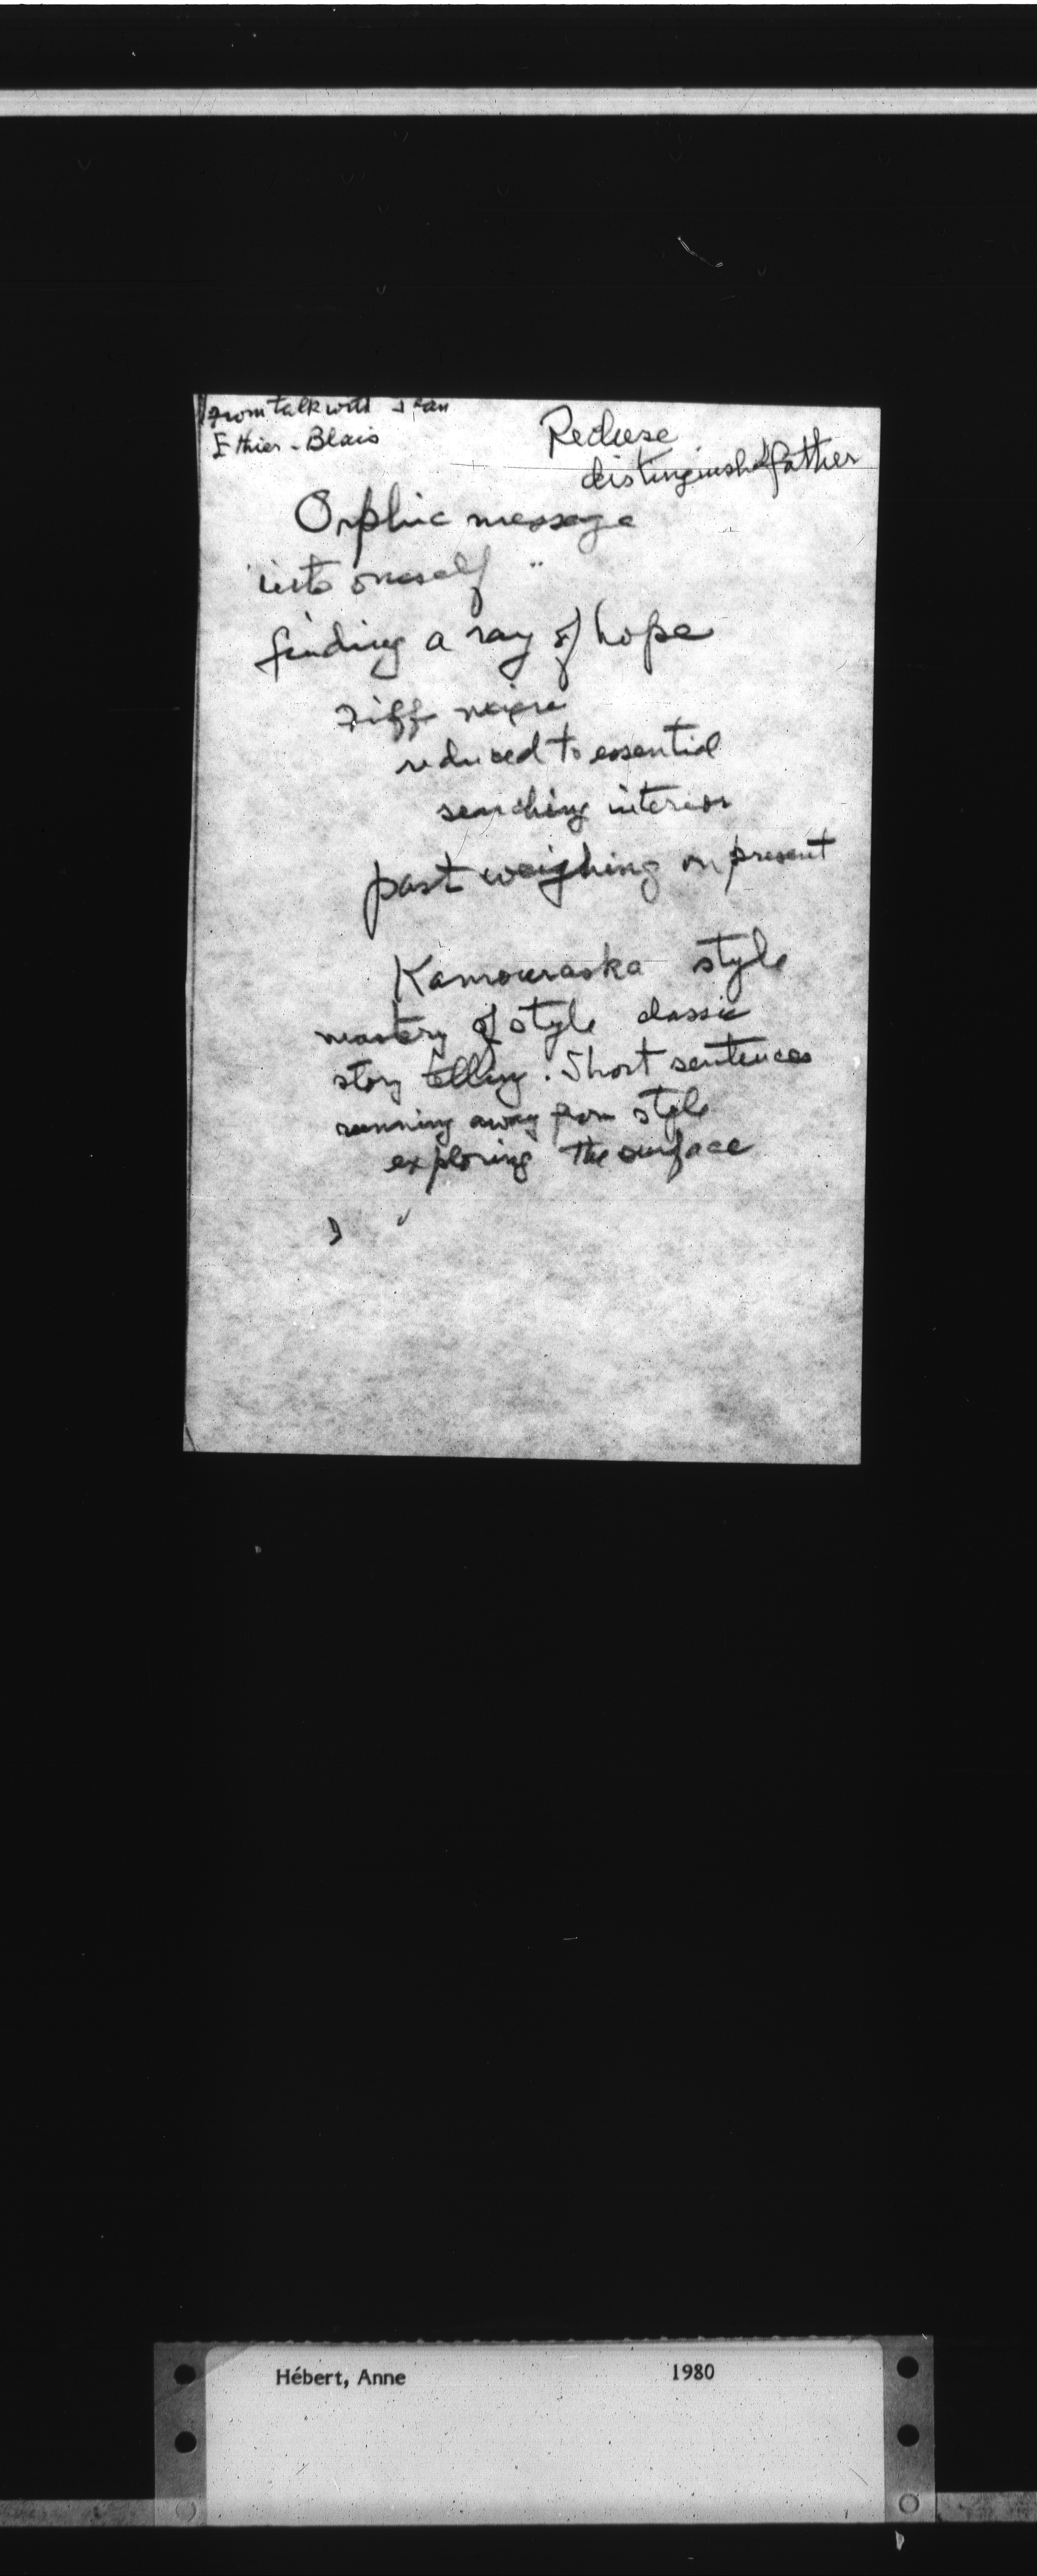 from talk with Jean
Ethier-Blais
Recluse
distinguished father
Orphic message
"into oneself"
finding a ray of hope
reduced to essential
searching interior
past weighing on present
Kamouraska style
mastery of style classic
story telling. Short sentences
running away from style
exploring the surface
Hébert, Anne 1980